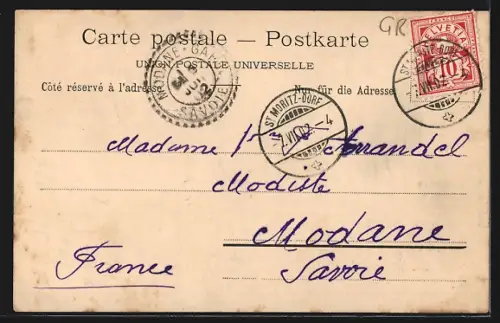 GR
Carte postale — Postkarte
UNION POSTALE UNIVERSELLE
Côté réservé à l'adresse
Nur für die Adresse
HELVETIA
FRANCO
10
MODANE-GARE
SAVOIE
ST MORITZ-DORF
2.VII.02.-4
Madame
Modiste
Modane
Savoie
France